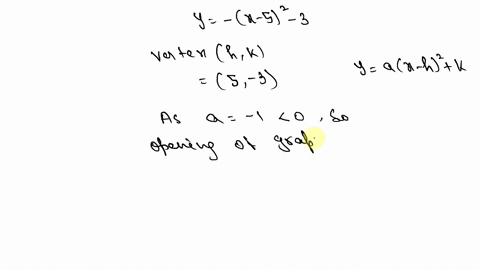 y = -(x-5)² - 3
vertex (h, k)
= (5, -3)
y = a(x-h)² + k
As a = -1 < 0, So
opening of grap